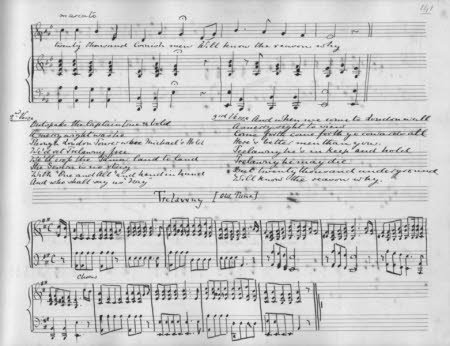 141
marcato
twenty thousand Cornish men Will know the reason why
2nd Verse
Outspake the Captain brave & bold
A merry wight was he
Though London Tower were Michael's Hold
We'd set Trelawny free
We'll cross the Tamar land to land
The Severn is no stay
With One and All and hand in hand
And who shall say us nay
And when we come to London wall
sight to view
Come forth come forth ye cowards all
Here's better men than you.
Trelawny he's in keep and hold
Trelawny he may die
But twenty thousand underground
Will know the reason why.
Trelawny [Old Tune]
Chorus